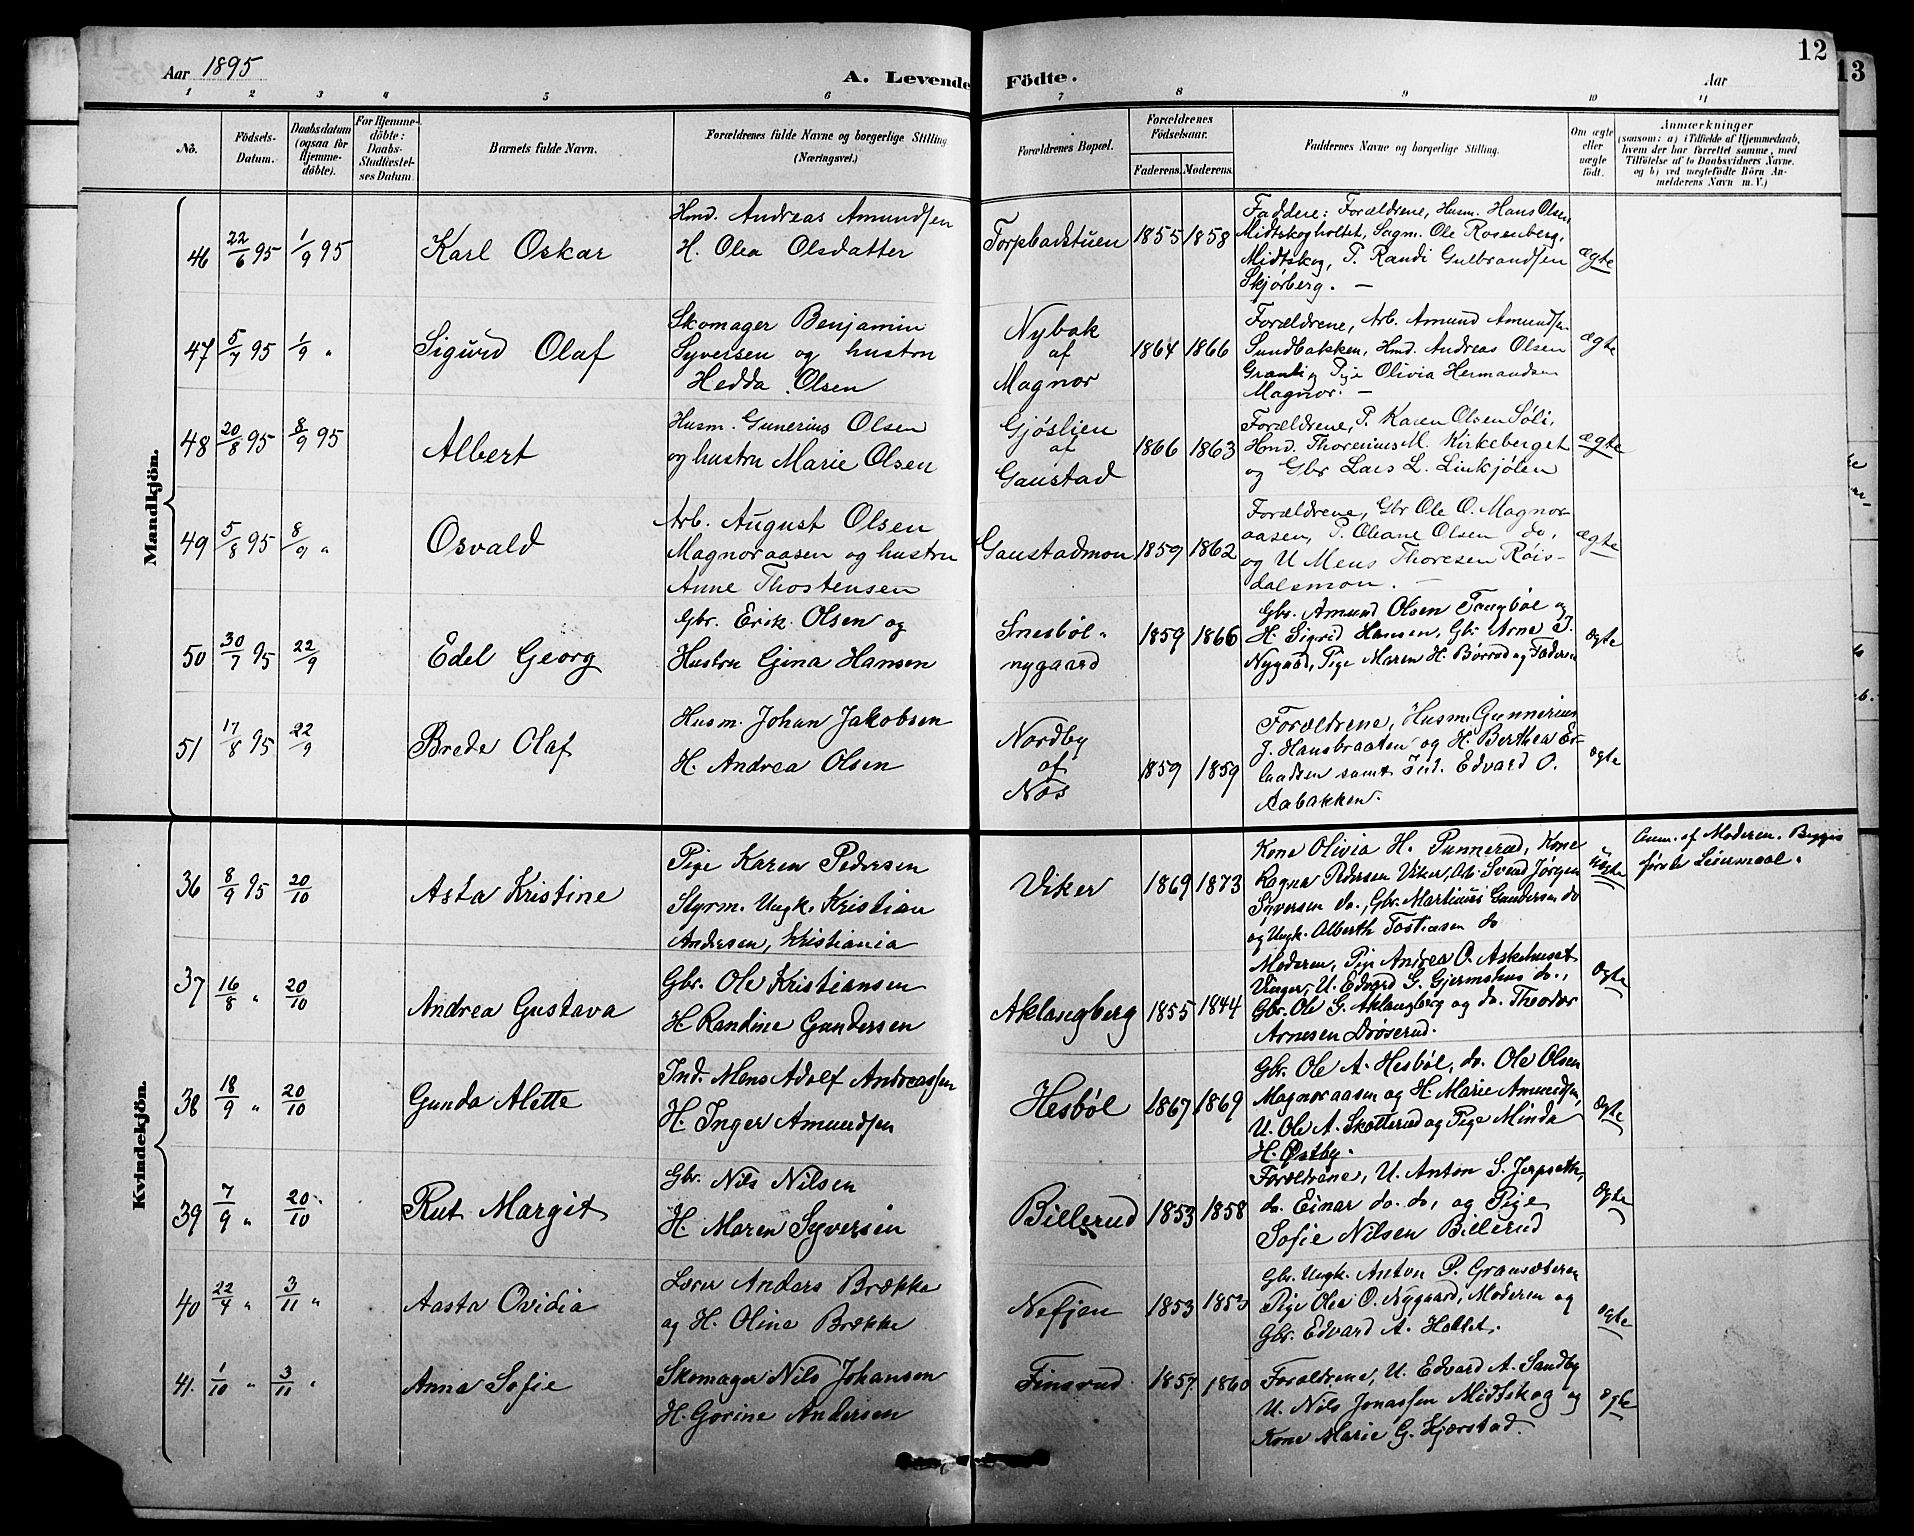 12
13
Aar 1895
A. Levende Födte.
Aar
1 2 3 4 5 6 7 8 9 10 11
No.
Födsels-Datum.
Daabsdatum (ogsaa for Hjemme-döbte).
For Hjemme-döbte: Daabs-Stadfæstel-ses Datum.
Barnets fulde Navn.
Forældrenes fulde Navne og borgerlige Stilling (Næringsvei.)
Forældrenes Bopæl.
Forældrenes Födselsaar.
Faderens. Moderens.
Faddernes Navne og borgerlige Stilling.
Om ægte eller uægte födt.
Anmærkninger
(saasom: a) i Tilfælde af Hjemmedaab,
hvem der har forrettet samme, med
Tilföielse af to Daabsvidners Navne.
og b) ved uægtefödte Börn An-
melderens Navn m. V.)
Mandkjön.
46 22/6 95 1/9 95 Karl Oskar
Hmd. Andreas Amundsen
H. Olea Olsdatter
Torpbadstuen 1855 1858
Faddere: Forældrene, Husm. Hans Olsen
Midtskogholtet, Sagm. Ole Rosenberg,
Midtskog, P. Randi Gulbrandsen
Skjørberg. —
ægte
47 5/7 95 1/9 " Sigurd Olaf
Skomager Benjamin
Syversen og hustru
Hedda Olsen
Nybak
af
Magnor
1864 1866
Forældrene, Arb. Amund Amundsen
Sundbakken, Hmd. Andreas Olsen
Pige Olivia Hermandsen
Magnor. —
ægte
48 20/8 95 8/9 95 Albert
Husm. Gunerius Olsen
og hustru Marie Olsen
Gjøslien
af
Gaustad
1866 1863
Forældrene, P. Karen Olsen Søli,
Hmd. Thorerius M. Kirkeberget
og Gbr Lars L. Linkjølen
ægte
49 5/8 95 8/9 " Osvald
Arb. August Olsen
Magnoraasen og hustru
Anne Thostensen
Gaustadmon 1859 1862
Forældrene, Gbr Ole O. Magnor-
aasen, P. Oleane Olsen do,
og U Mens Thoresen Røis-
dalsmon. —
ægte
50 30/7 95 22/9 Edel Georg
Gbr. Erik Olsen og
Hustru Gina Hansen
Snesbøl-
nygaard
1859 1866
Gbr. Amund Olsen Tangbøl og
H. Sigrid Hansen, Gbr Arne J.
Nygaard, Pige Maren H. Børrud og Faderen
ægte
51 17/8 95 22/9 Brede Olaf
Husm. Johan Jakobsen
H. Andrea Olsen
Nordby
af
Næs
1859 1859
Forældrene, Husm. Gunnerius
J. Hansbraaten og H. Berthea Er-
landsen samt Ind. Edvard O.
Aabakken.
ægte
Kvindekjön.
36 8/9 95 20/10 Asta Kristine
Pige Karen Pedersen
Styrm. Ungk. Kristian
Andersen, Kristiania
Viker 1869 1873
Kone Olivia H. Punnerud, Kone
Ragna Pedersen Viker, Arb. Svend Jørgen
Syversen do., Gbr. Martinius Gundersen do
og Ungk. Alberth Tostensen do
Uægte
Anm. af Moderen. Begges
første Leiermaal.
37 16/8 " 20/10 Andrea Gustava
Gbr. Ole Kristiansen
H Randine Gundersen
Aklangberg 1855 1844
Moderen, Pige Andrea O. Askehuset
Vinger, U. Edvard G. Gjermshus do.,
Gbr. Ole G. Aklangberg og do. Theodor
Arnesen Drøserud.
Ægte
38 18/9 " 20/10 Gunda Alette
Ind. Mens Adolf Andreassen
H. Inger Amundsen
Hesbøl 1867 1869
Gbr. Ole A. Hesbøl, do. Ole Olsen
Magnoraasen og H. Marie Amundsen,
U. Ole A. Skotterud og Pige Minda
H. Østby.
Ægte
39 7/9 " 20/10 Rut Margit
Gbr. Nils Nilsen
H. Maren Syversen
Billerud 1853 1858
Forældrene, U. Anton S. Jerpseth,
do. Einar do. do, og Pige
Sofie Nilsen Billerud
Ægte
40 22/4 " 3/11 " Aasta Ovidia
Lærer Anders Brække
og H. Olina Brække
Nefjen 1853 1853
Gbr. Ungk. Anton P. Gransæteren
Pige Olea O. Nygaard, Moderen og
Gbr. Edvard A. Holtet.
ægte
41. 1/10 " 3/11 " Anna Sofie
Skomager Nils Johansen
H. Gorine Andersen
Finsrud 1857 1860
Forældrene, U. Edvard A. Sandby
U. Nils Jonassen Midtskog og
Kone Marie G. Kjærstad.
ægte